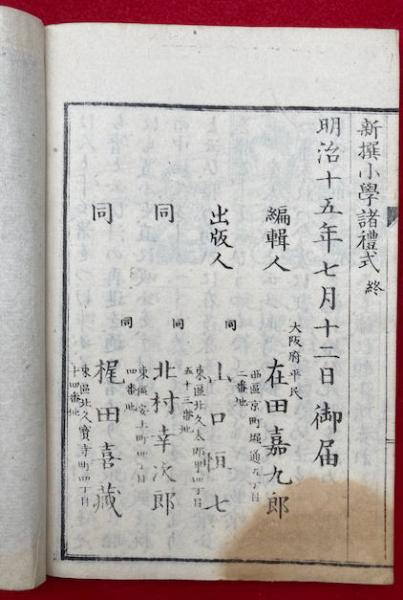 新撰小學諸禮式 終
明治十五年七月十二日御届
編輯人
大阪府平民
在田嘉九郎
西區京町堀通五丁目
二番地
出版人
同
山口恒七
東區北久太郎町四丁目
五十三番地
同
同
北村幸次郎
東區安土町四丁目
四番地
同
同
梶田喜藏
東區北久寶寺町四丁目
十四番地